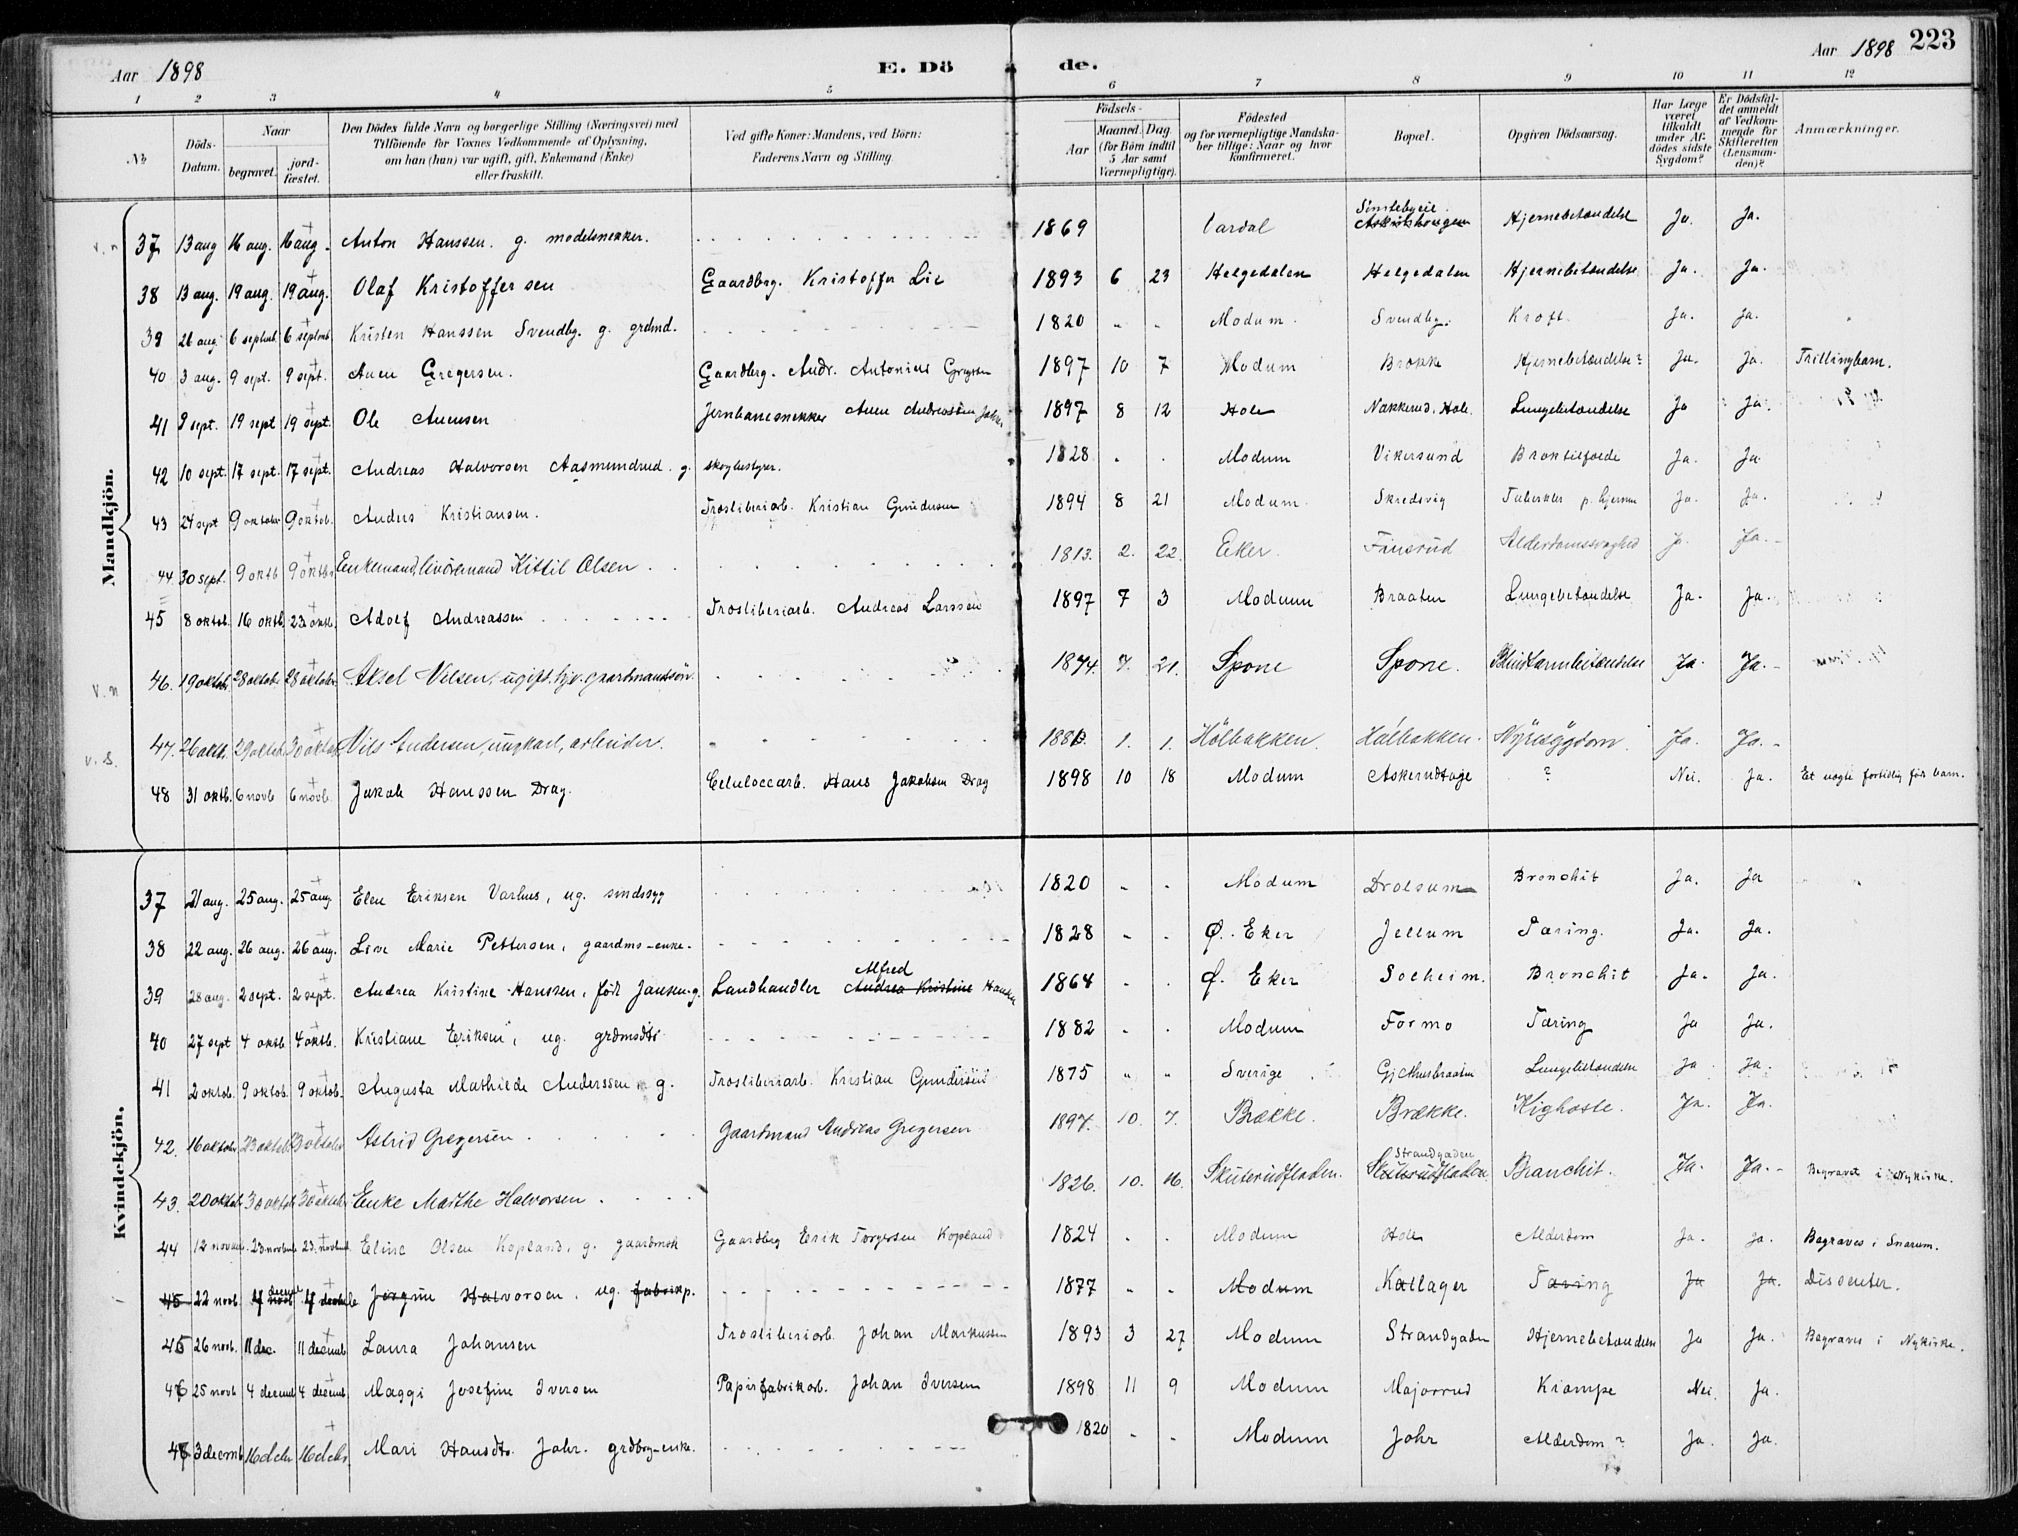 Aar 1898 E. Dö de. Aar 1898 223
1 2 3 4 5 6 7 8 9 10 11 12
No Döds-Datum. Naar begravet. jordfæstet. Den Dödes fulde Navn og borgerlige Stilling (Næringsvei) med Tilföiende for Voxnes Vedkommende af Oplysning, om han (hun) var ugift, gift, Enkemand (Enke) eller fraskilt. Ved gifte Koner: Mandens, ved Börn: Faderens Navn og Stilling. Födsels- Aar Maaned. Dag. (for Börn indtil 5 Aar samt Værnepligtige). Födested og for værnepligtige Mandskaber tillige: Naar og hvor konfirmeret. Bopæl. Opgiven Dödsaarsag. Har Læge været tilkaldt under Afdödes sidste Sygdom? Er Dödsfaldet anmeldt af Vedkommende for Skifteretten (Lensmanden)? Anmærkninger.
Mandkjön.
v. n 37 13 aug 16 aug. 16 aug. Anton Hanssen. g. modelsnekker. 1869 Vardal Hjernebetændelse Ja. Ja.
38 13 aug. 19 aug. 19 aug. Olaf Kristoffersen Gaardbrg. Kristoffer Lie 1893 6 23 Helgedalen Helgedalen Hjernebetændelse Ja. Ja.
39 26 aug 6 septmb. 6 septmb. Kristen Hanssen Svendby. g. grdmd. 1820 - - Modum. Svendby. Kræft. Ja. Ja.
40 3 aug. 9 sept. 9 sept. Auen Gregersen. Gaardbrg. Andr. Antonius Gregersen 1897 10 7 Modum Brække Hjernebetændelse? Ja. Ja. Trillingbarn.
41 9 sept. 19 sept 19 sept. Ole Auensen Jernbanesnekker Auen Andreassen 1897 8 12 Hole Nakkerud. Hole. Lungebetændelse Ja Ja.
42 10 sept. 17 sept. 17 sept. Andreas Halvorsen Aasmundrud. g. skogbestyrer. 1828 . . Modum Vikersund Broktilfælde Ja. Ja
43 24 sept 9 oktober 9 oktob. Anders Kristiansen. Træsliberiarb. Kristian Gundersen 1894 8 21 Modum. Skredsvig Tuberkler p. hjernen Ja. Ja.
44. 30 sept. 9 oktb 9 oktbr Enkemand, livöremand Kittil Olsen 1813. 2. 22. Eker. Finsrud Alderdomssvaghed Ja. Ja.
45 8 oktob. 16 oktb. 23 oktb. Adolf Andreassen Træsliberiarb. Andreas Larssen 1897 7 3 Modum Braaten Lungebetændelse Ja. Ja.
v. n 46. 19 oktob. 28 oktob. 28 oktober. Aksel Nilsen, ugift, hjv. gaardmandssön 1874. 7. 21. Spone Spone. Blindtarmbetændelse Ja. Ja.
v. s. 47. 26 oktb. 29 oktob. 30 oktob. Nils Andersen, ungkarl, arbeider. 1. 1. Hölbakken. Hölbakken. Nyresygdom. Ja. Ja.
48 31 oktb. 6 novb 6 novb. Jakob Hanssen Drag. Celuloccarb. Hans Jakobsen Drag 1898 10 18 Modum Askerudhage ? Nei. Ja. Et nogle fortidlig föd barn.
Kvindekjön.
37 21 aug. 25 aug. 25 aug. Elen Eriksen Varhus, ug. sindssyg 1820 - . Modum Drolsum Bronchit Ja. Ja
38 22 aug. 26 aug. 26 aug. Live Marie Pettersen, gaardms-enke. 1828 - . Ø. Eker Jellum Tæring. Ja. Ja.
39 28 aug. 2 sept. 2 sept. Andrea Kristine Hanssen, föd Jansen. g. Landhandler Alfred Andrea Kristine Hanssen 1864 . . Ø. Eker Solheim. Bronchit Ja. Ja.
40 27 sept 4 oktb 4 oktb. Kristiane Eriksen, ug. grdmsdtr 1882 . . Modum Formo Tæring Ja Ja.
41 2 oktob. 9 oktob. 9 oktob. Augusta Mathilde Anderssen g. Træsliberiarb. Kristian Gundersen 1875 " " Sverige Gjethusbraaten Lungebetændelse Ja Ja.
42. 16 oktober 23 oktob. 23 oktober Astrid Gregersen Gaardmand Andreas Gregersen 1897. 10. 7. Brække. Brække. Kighoste. Ja. Ja.
43. 20 oktob. 30 oktob. 30 oktob. Enke Marthe Halvorsen 1826. 10. 16. Skuterudfladen. Strandgaden Skuterudfladen Branchit. Ja. Ja. Begravet i Nykirke.
44 12 novmb. 23 novbmb 23. novbmb. Eline Olsen Kopland, g. gaardmsk Gaardbrg Erik Torgersen Kopland 1824 . . Modum Hole Alderdom Ja. Ja. Begraves i Snarum.
45 22 novb. 4 decmb 4 decmb Jörgine Halvorsen. ug. fabrikp. 1877 - - Modum Kallager Tæring Ja Ja. Dissenter.
45 26 novb. 11 dec. 11 decmb Laura Johansen Træsliberiarb. Johan Markussen 1893 3 27 Modum Strandgaden Hjernebetændelse Ja Ja. Begraves i Nykirke.
46 25 novb 4 decmb 4 decmb. Maggi Josefine Iversen Papirfabrikarb. Johan Iversen 1898 11 9 Modum Majorrud Krampe Nei. Ja.
47 3 decmb 16 decbr 16 decbr. Mari Hansdtr. Johr. grdbrg-enke. 1820 - - Modum Johr Alderdom? Ja. Ja.